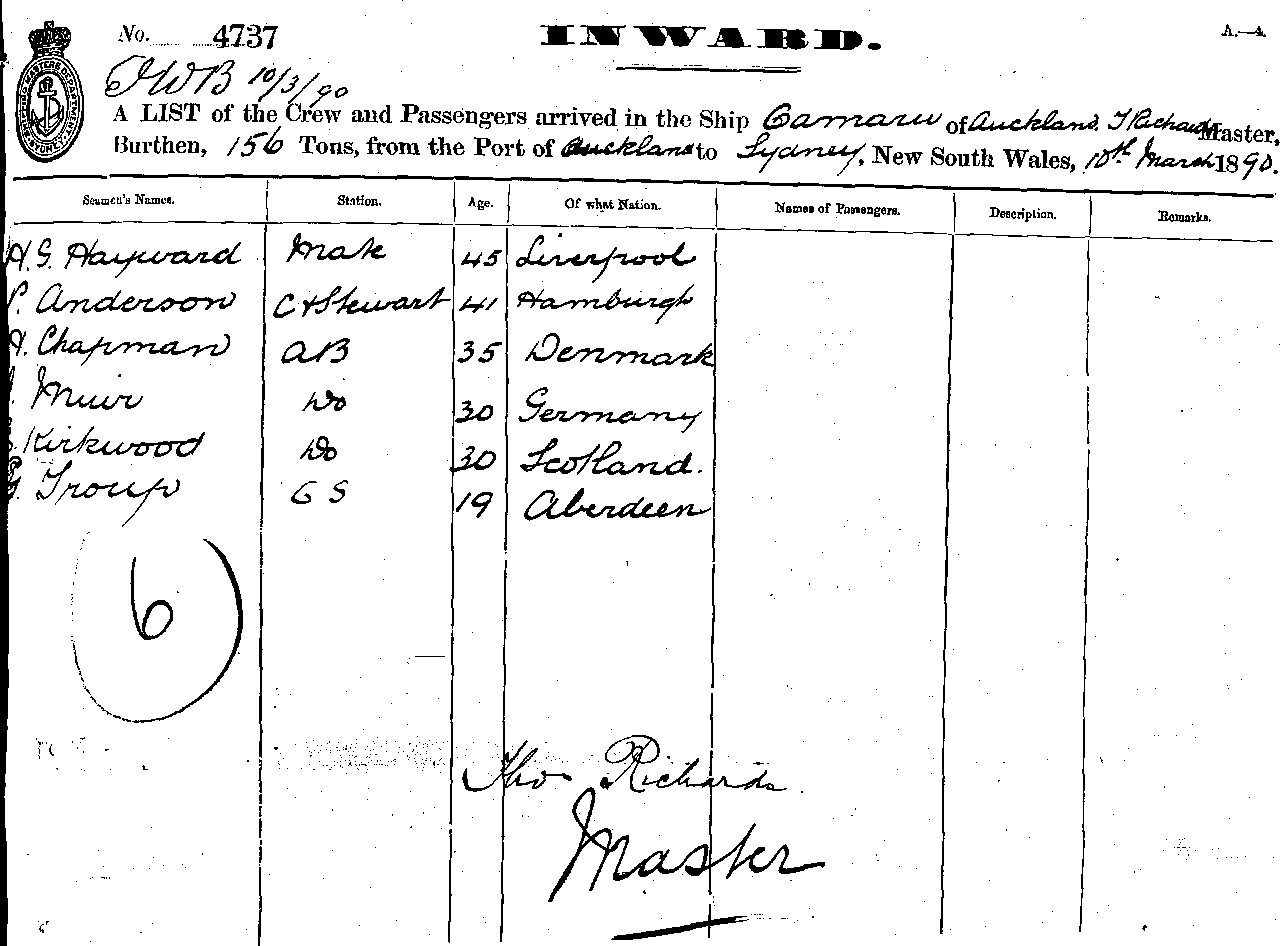 No. 4737 INWARD. A.—4.
JWB 10/3/90
A LIST of the Crew and Passengers arrived in the Ship Oamaru of Auckland. T Richards Master,
Burthen, 156 Tons, from the Port of Auckland to Sydney, New South Wales, 10th March 1890.
Seamen's Names. Station. Age. Of what Nation. Names of Passengers. Description. Remarks.
H. G. Hayward Mate 45 Liverpool
P. Anderson C & Stewart 41 Hamburgh
H. Chapman AB 35 Denmark
Muir Do 30 Germany
Kirkwood Do 30 Scotland.
G. Troup 19 Aberdeen
6
Tho Richards
Master